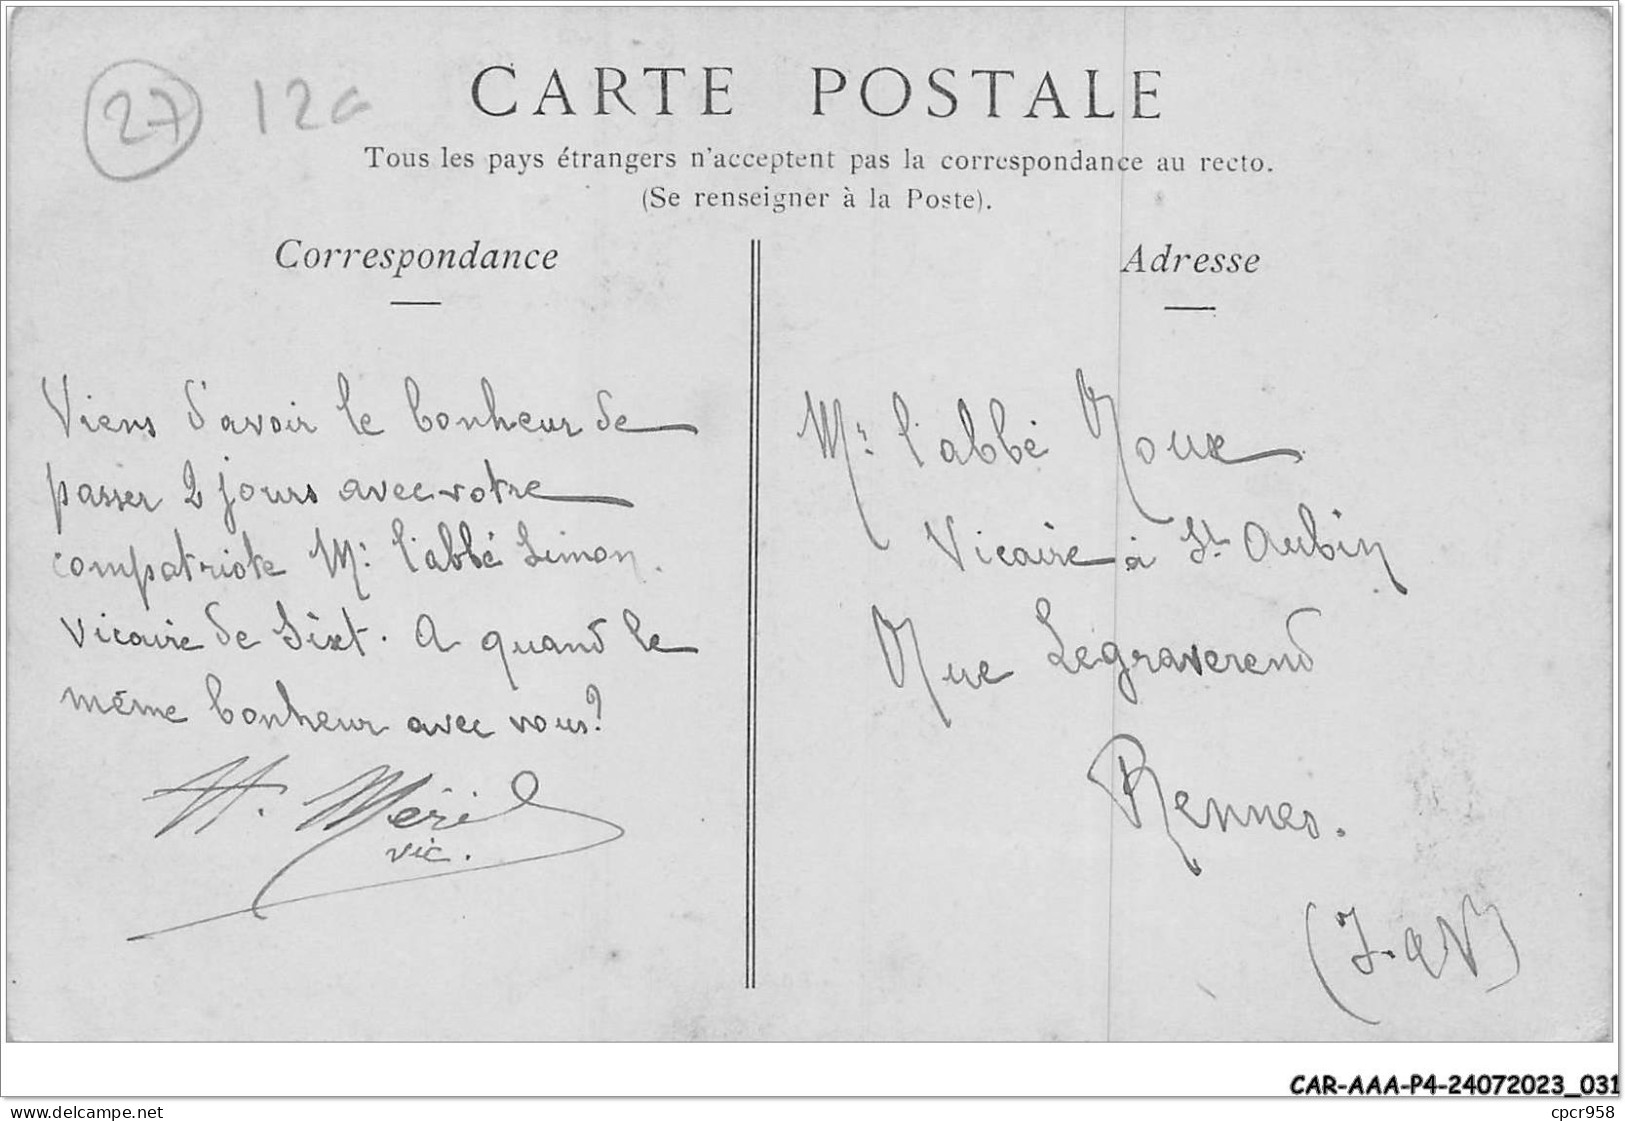 27 12a
CARTE POSTALE
Tous les pays étrangers n'acceptent pas la correspondance au recto.
(Se renseigner à la Poste).
Correspondance
Viens d'avoir le bonheur de
passer 2 jours avec votre
compatriote Mr l'abbé Simon.
vicaire de Sixt. A quand le
même bonheur avec vous?
H. Méril
vic.
Adresse
Mr l'abbé Roux
Vicaire à St Aubin
Rue Legraverend
Rennes.
(I. & V)
CAR-AAA-P4-24072023_031
delcampe.net
cpcr958